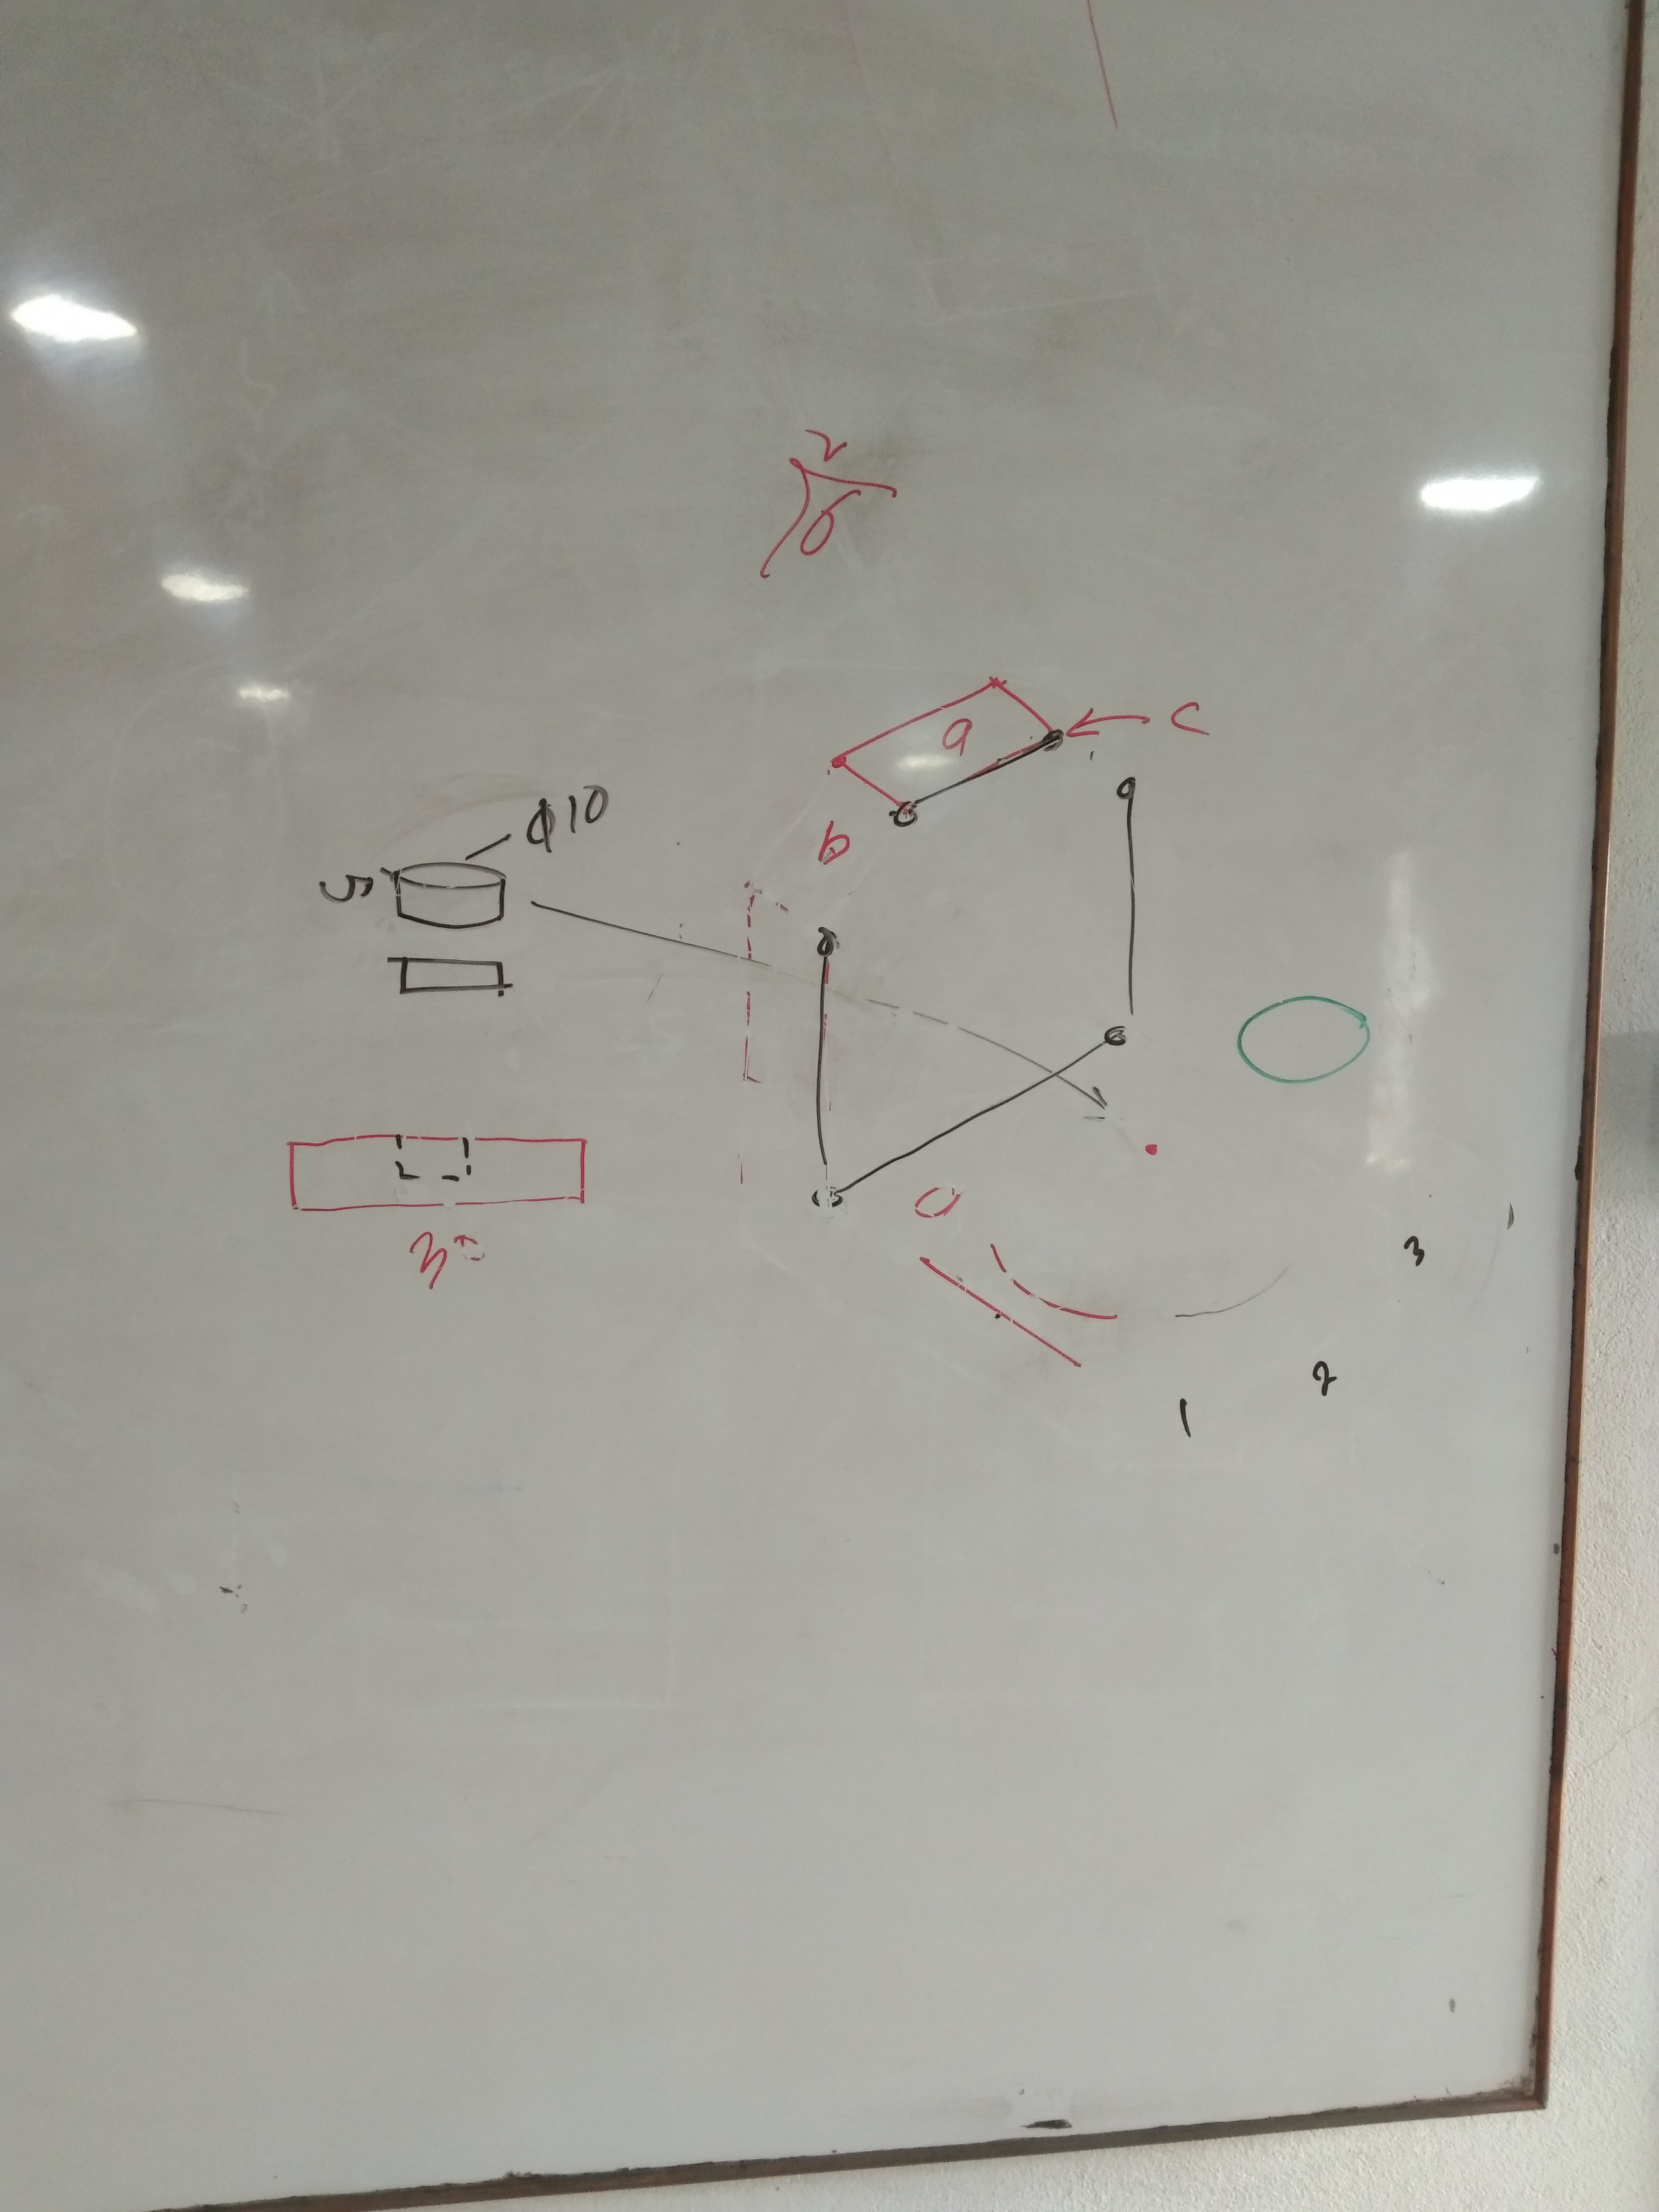 2
6
a
c
b
φ10
5
3
2
1